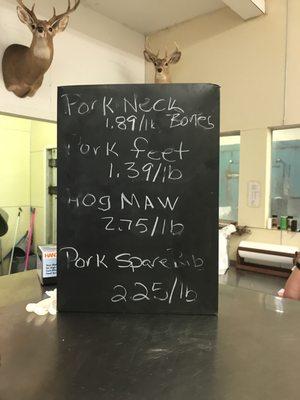 Pork Neck
1.89/lb Bones
Pork feet
1.39/lb
Hog MAW
2.75/lb
Pork Spare Rib
2.25/lb